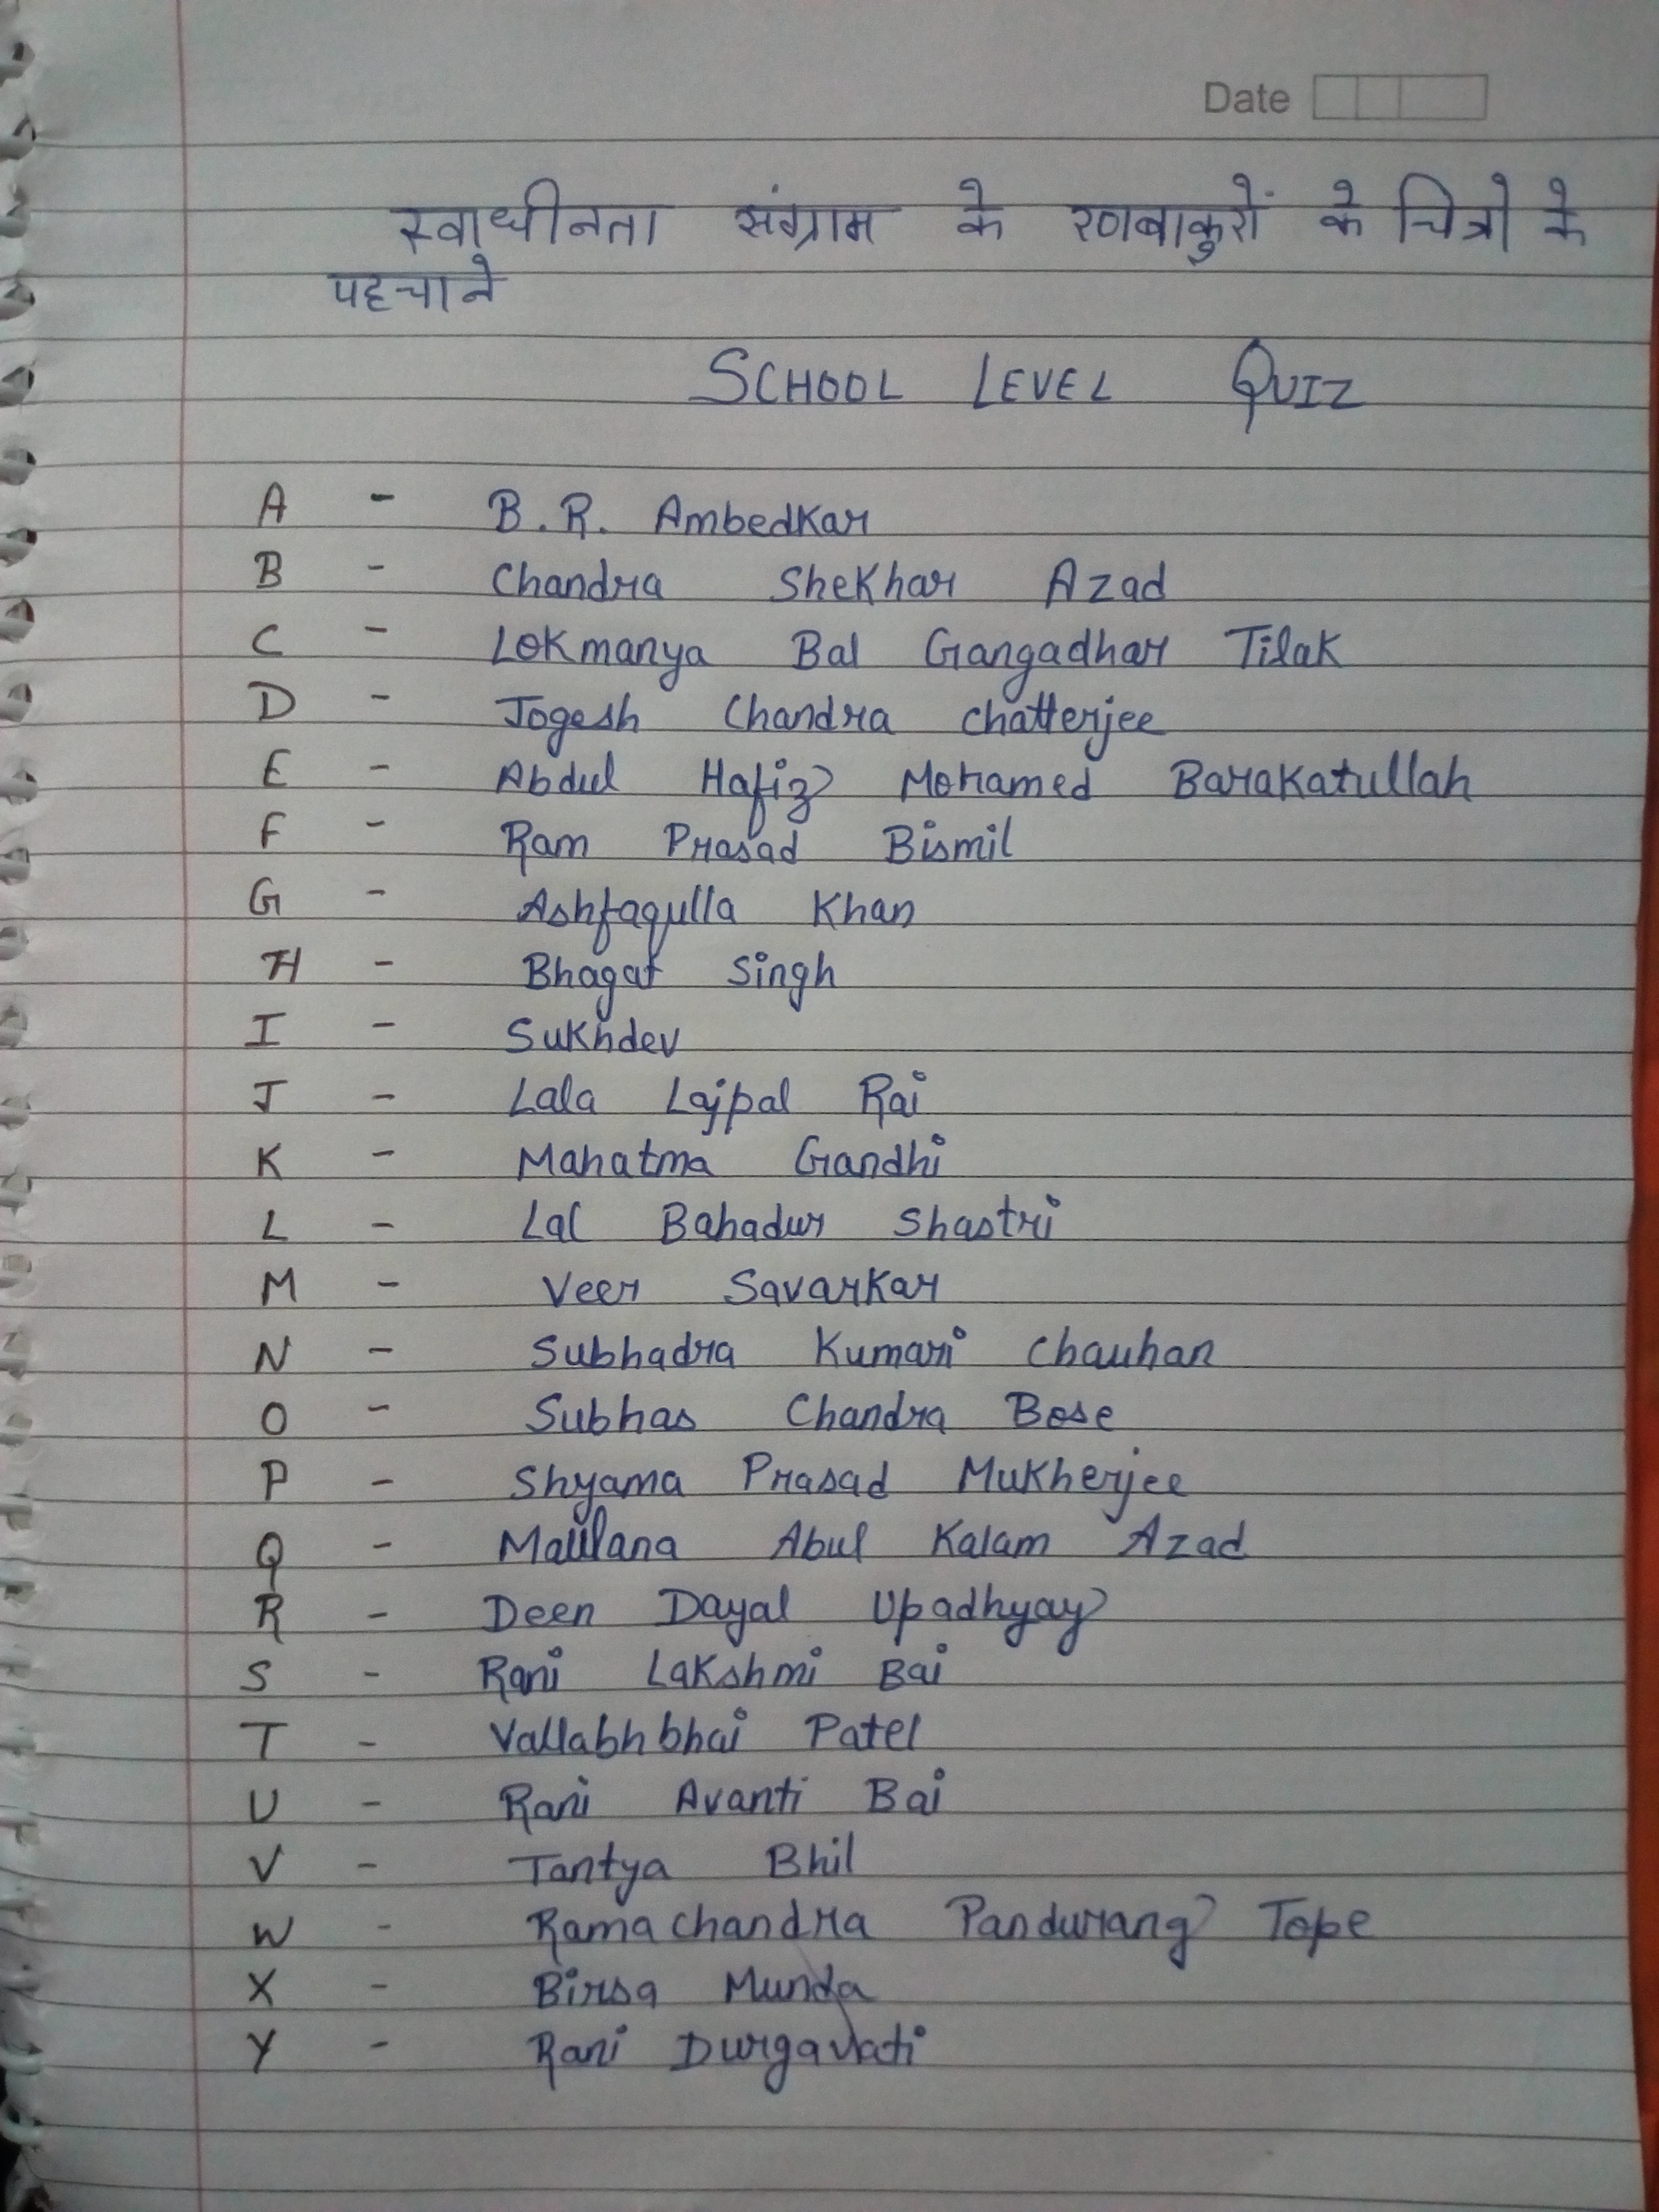 Date
स्वाधीनता संग्राम के रणबाकुरों के चित्रो के
पहचाने
SCHOOL LEVEL QUIZ
A - B.R. Ambedkar
B - Chandra Shekhar Azad
C - Lokmanya Bal Gangadhar Tilak
D - Jogesh Chandra Chatterjee
E - Abdul Hafiz Mohamed Barakatullah
F - Ram Prasad Bismil
G - Ashfaqulla Khan
H - Bhagat Singh
I - Sukhdev
J - Lala Lajpal Rai
K - Mahatma Gandhi
L - Lal Bahadur Shastri
M - Veer Savarkar
N - Subhadra Kumari Chauhan
O - Subhas Chandra Bose
P - Shyama Prasad Mukherjee
Q - Maulana Abul Kalam Azad
R - Deen Dayal Upadhyay
S - Rani Lakshmi Bai
T - Vallabhbhai Patel
U - Rani Avanti Bai
V - Tantya Bhil
W - Ramachandra Pandurang Tope
X - Birsa Munda
Y - Rani Durgavati